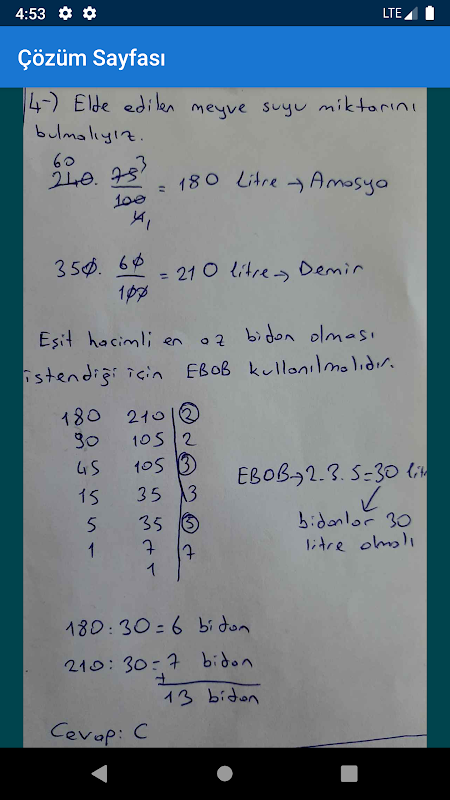 4:53
LTE
Çözüm Sayfası
4-) Elde edilen meyve suyu miktarını
bulmalıyız.
60 3
240. 75/100 = 180 litre → Amasya
4 1
350. 60/100 = 210 litre → Demir
Eşit hacimli en az bidon olması
istendiği için EBOB kullanılmalıdır.
180 210 2
90 105 2
45 105 3
15 35 3
5 35 5
1 7 7
1
EBOB → 2.3.5=30 lit
bidonlar 30
litre olmalı
180:30=6 bidon
210:30=7 bidon
+
13 bidon
Cevap: C